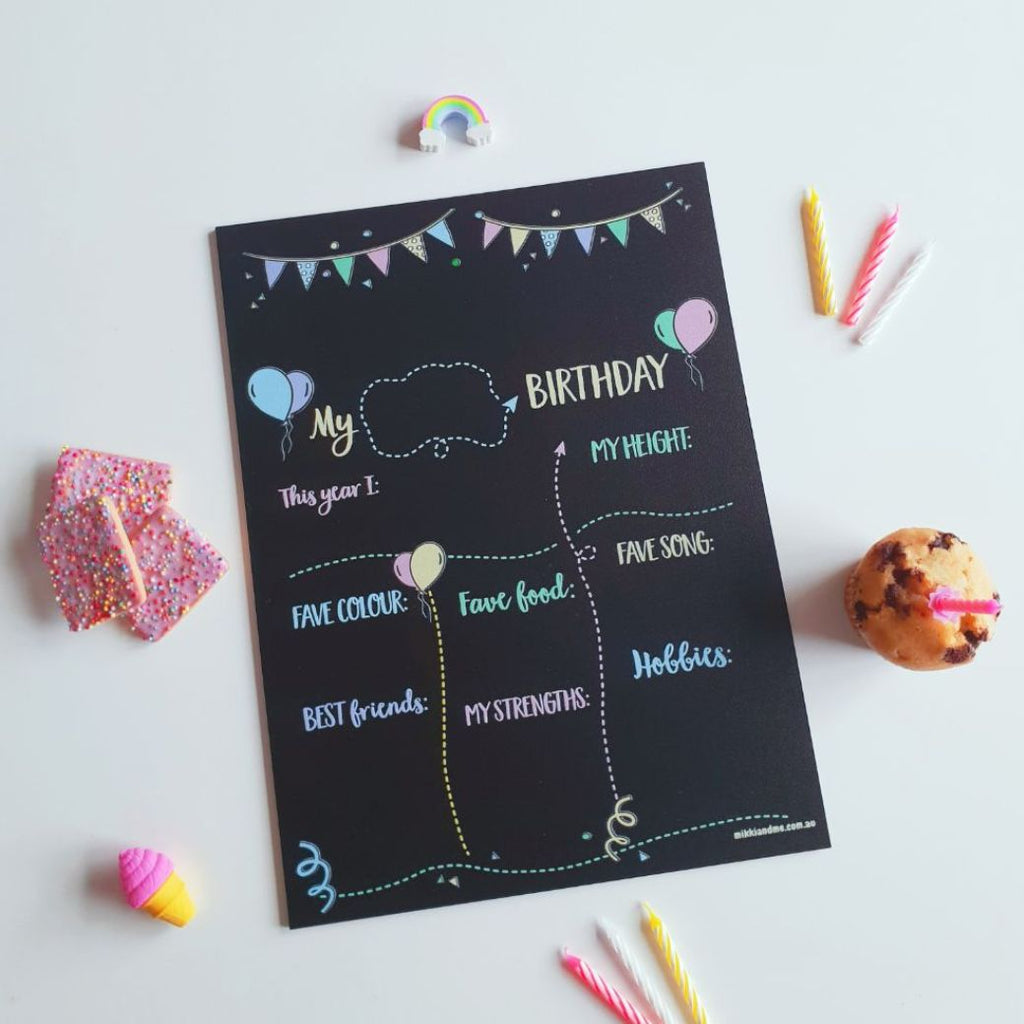 My
BIRTHDAY
MY HEIGHT:
This year I:
FAVE SONG:
FAVE COLOUR:
Fave food:
Hobbies:
BEST friends:
MY STRENGTHS:
mikkiandme.com.au